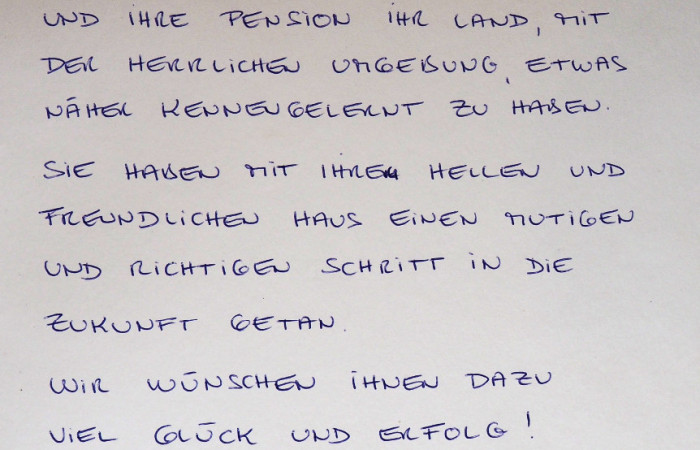 UND IHRE PENSION IHR LAND, MIT
DER HERRLICHEN UMGEBUNG, ETWAS
NÄHER KENNENGELERNT ZU HABEN.
SIE HABEN MIT IHREM HELLEN UND
FREUNDLICHEN HAUS EINEN MUTIGEN
UND RICHTIGEN SCHRITT IN DIE
ZUKUNFT GETAN.
WIR WÜNSCHEN IHNEN DAZU
VIEL GLÜCK UND ERFOLG!